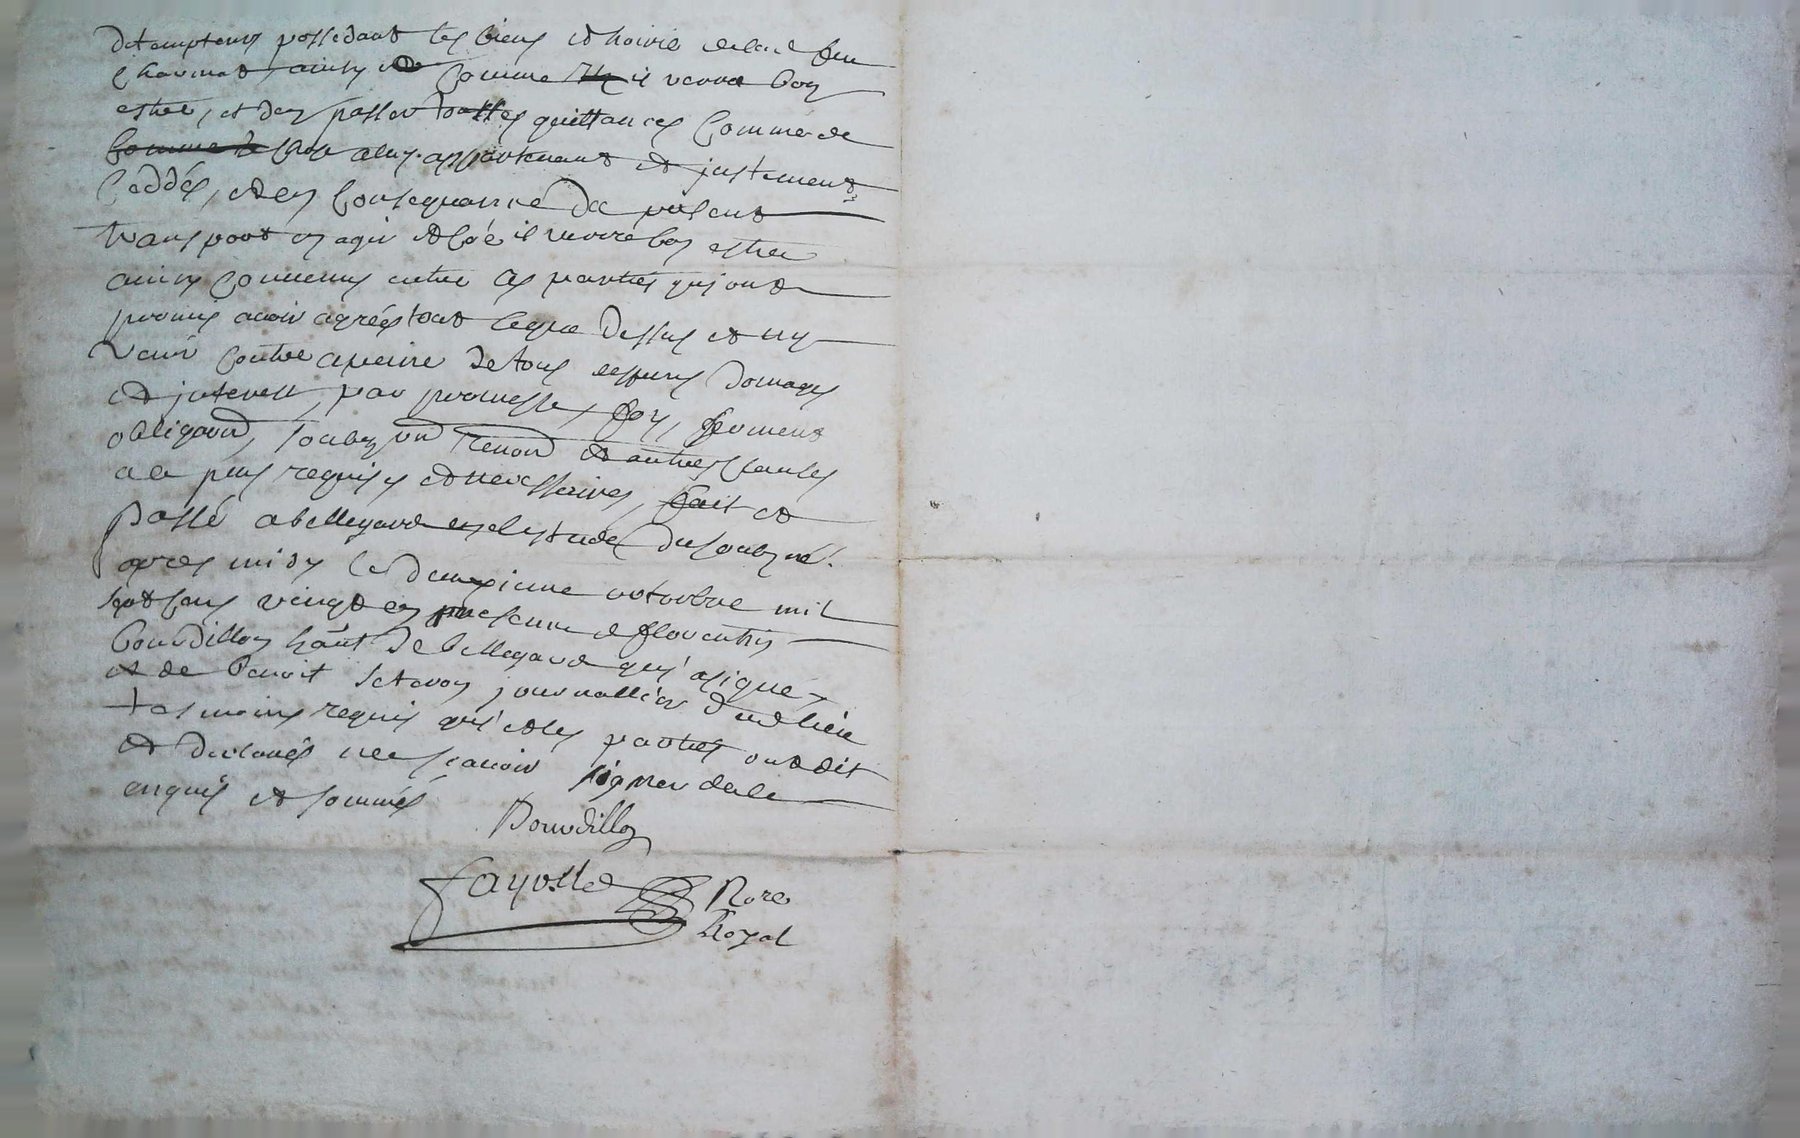 detempteurs possedant les biens et hoirie dudit feu
Charmet, ainsy comme il verra bon
estre, et den passer touttes quittances comme de
comme de chose a luy appartenant et justement
ceddée, et en consequance du present
transport en agir et ... il verra bon estre
ainsy convenus entre les parties qui ont
promis avoir agréé tout ce que dessus et ny
venir contre a peine de tous despens domages
et interest, par promesse, foy, serment
obligaon, soubzon renon et autres clauses
a ce plus requises et necessaires, fait et
passé a bellegarde en lestude du soubzné
apres midy le deuxieme octobre mil
sept cens vingt en presence de florentin
Bourdillon hâût de bellegarde qui a signé
et de benoit journallier dudit lieu
tesmoins requis qui et les parties ont dit
et declarés ne scavoir signer de ce
enquis et sommés
Bourdillon
Fayolle Nore
Royal